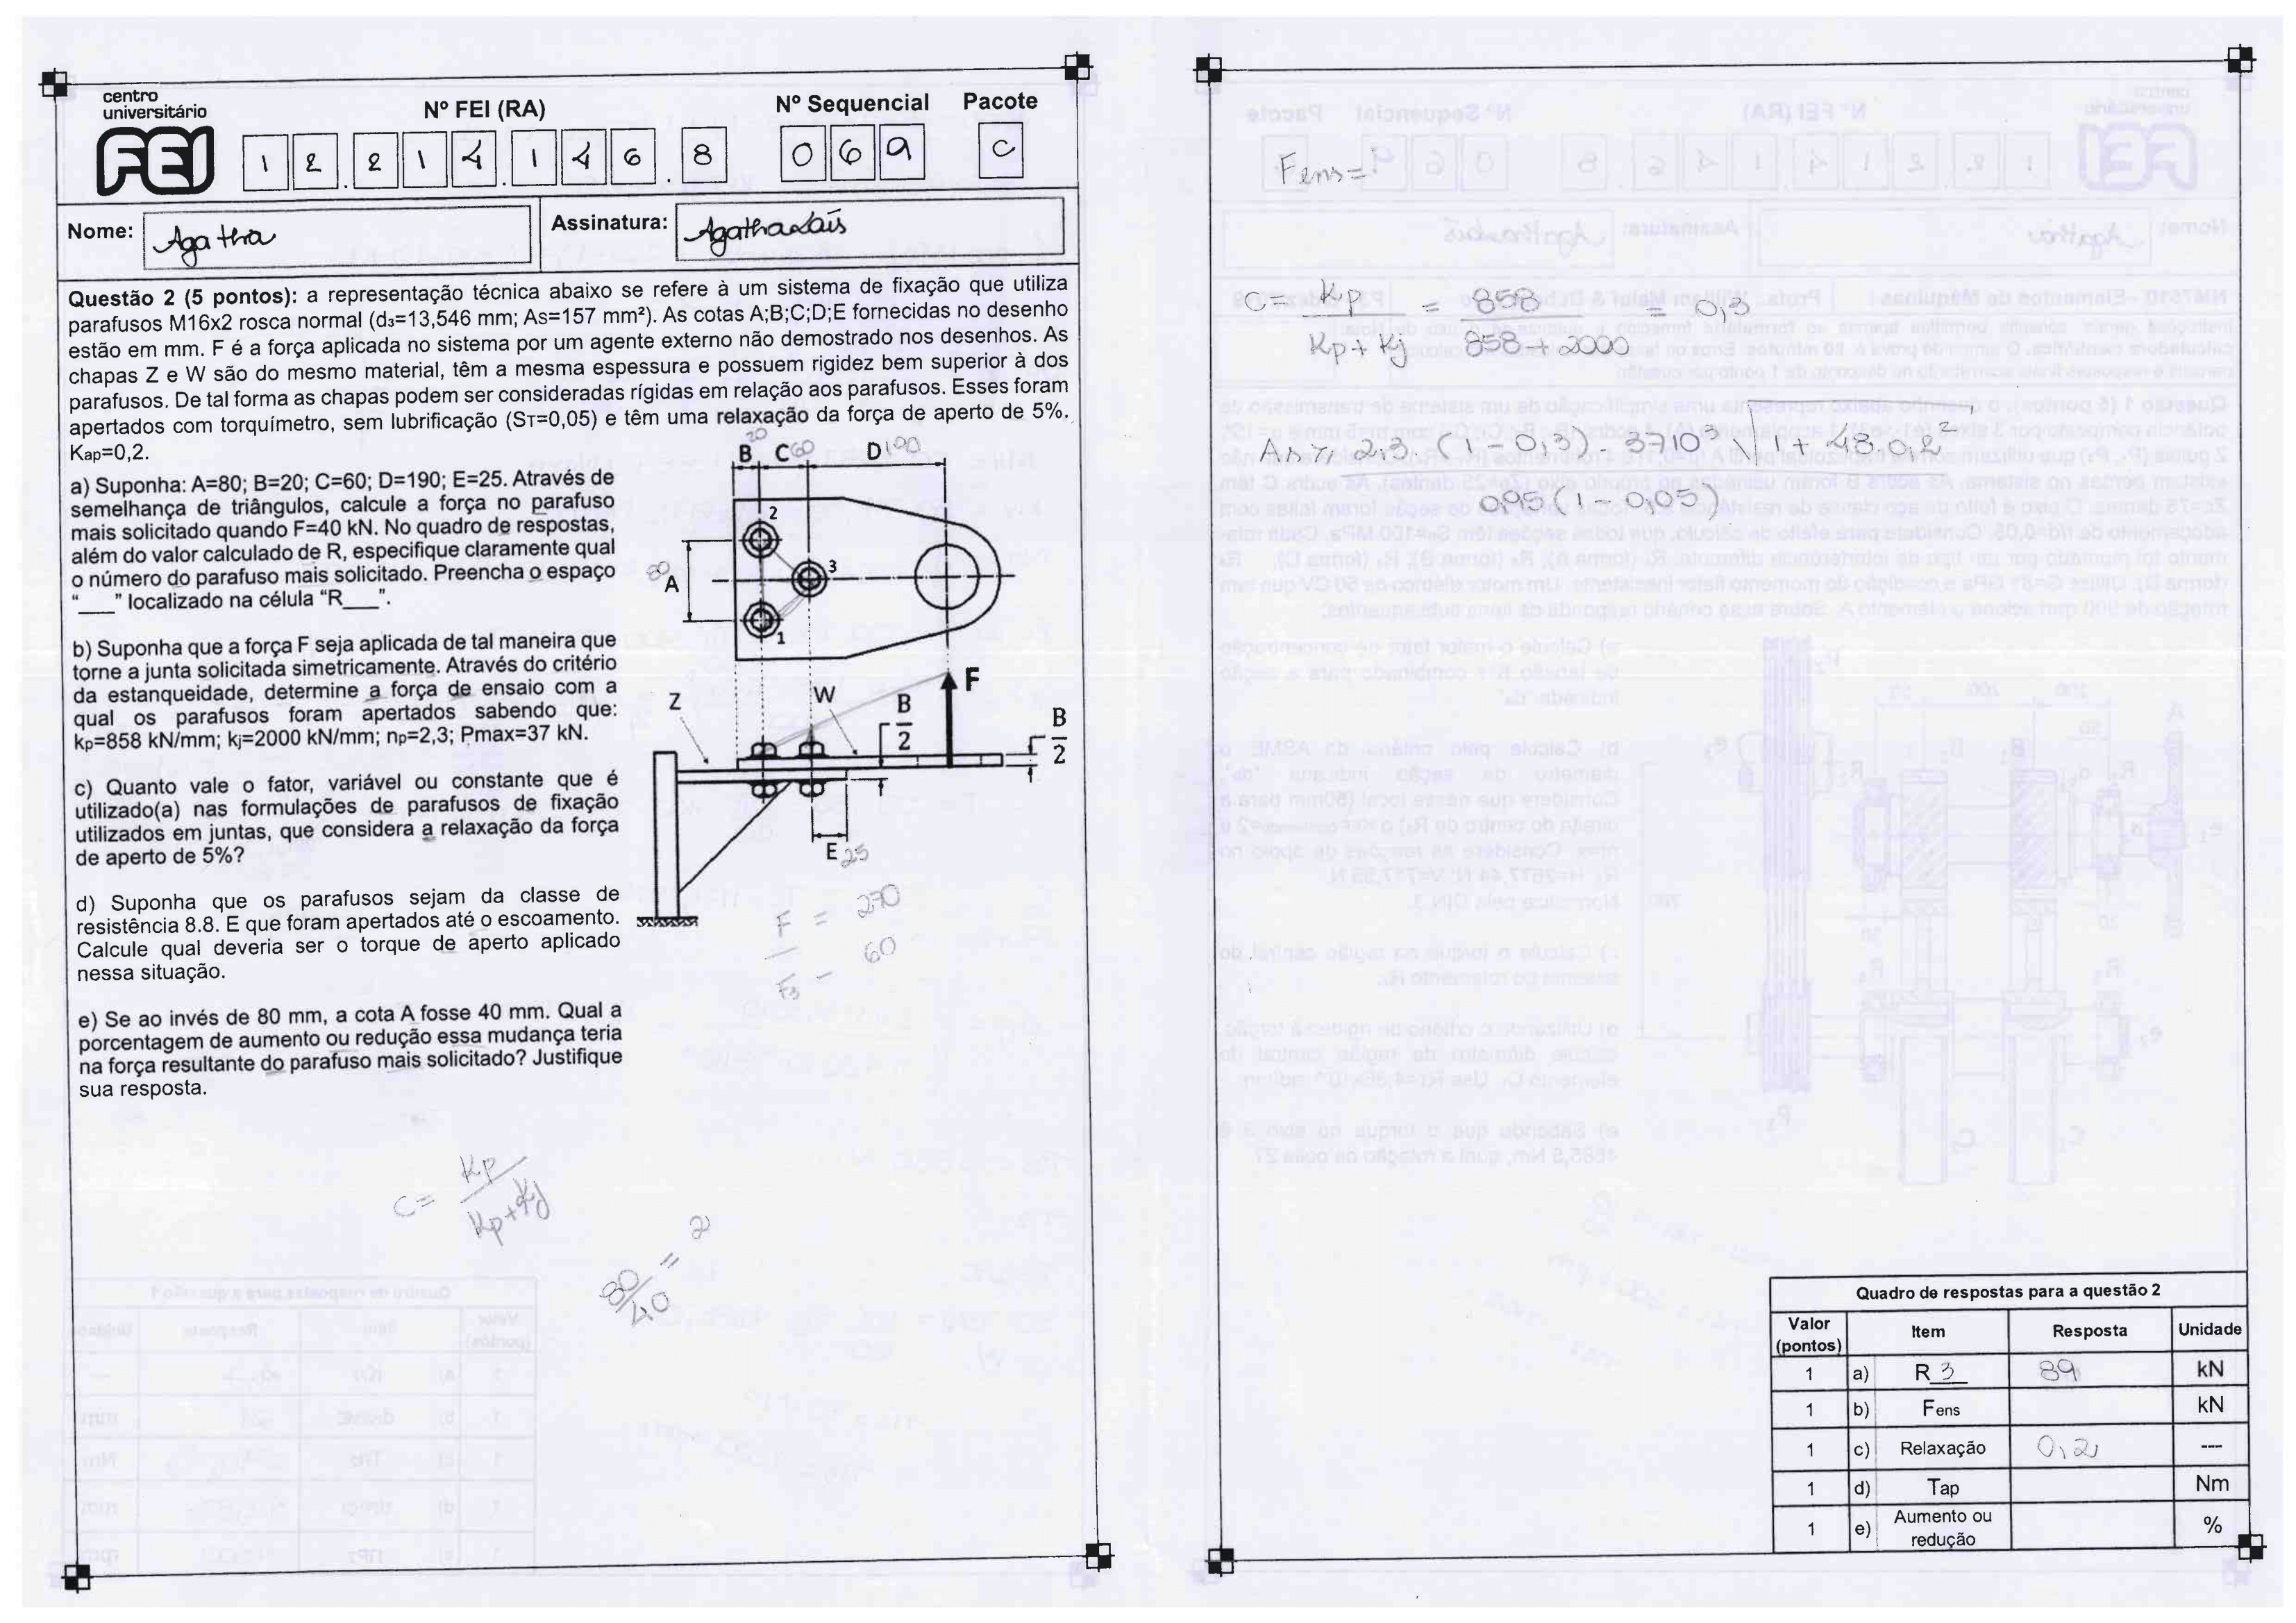 centro
universitário
FEI
Nº FEI (RA)
Nº Sequencial
Pacote
1 2 . 2 1 4 . 1 4 6 . 8
0 6 9
C
Nome: Agatha
Assinatura: Agatha Laís
Questão 2 (5 pontos): a representação técnica abaixo se refere à um sistema de fixação que utiliza
parafusos M16x2 rosca normal (d₃=13,546 mm; As=157 mm²). As cotas A;B;C;D;E fornecidas no desenho
estão em mm. F é a força aplicada no sistema por um agente externo não demostrado nos desenhos. As
chapas Z e W são do mesmo material, têm a mesma espessura e possuem rigidez bem superior à dos
parafusos. De tal forma as chapas podem ser consideradas rígidas em relação aos parafusos. Esses foram
apertados com torquímetro, sem lubrificação (ST=0,05) e têm uma relaxação da força de aperto de 5%.
Kap=0,2.
a) Suponha: A=80; B=20; C=60; D=190; E=25. Através de
semelhança de triângulos, calcule a força no parafuso
mais solicitado quando F=40 kN. No quadro de respostas,
além do valor calculado de R, especifique claramente qual
o número do parafuso mais solicitado. Preencha o espaço
“___” localizado na célula “R___”.
b) Suponha que a força F seja aplicada de tal maneira que
torne a junta solicitada simetricamente. Através do critério
da estanqueidade, determine a força de ensaio com a
qual os parafusos foram apertados sabendo que:
kp=858 kN/mm; kj=2000 kN/mm; np=2,3; Pmax=37 kN.
c) Quanto vale o fator, variável ou constante que é
utilizado(a) nas formulações de parafusos de fixação
utilizados em juntas, que considera a relaxação da força
de aperto de 5%?
d) Suponha que os parafusos sejam da classe de
resistência 8.8. E que foram apertados até o escoamento.
Calcule qual deveria ser o torque de aperto aplicado
nessa situação.
e) Se ao invés de 80 mm, a cota A fosse 40 mm. Qual a
porcentagem de aumento ou redução essa mudança teria
na força resultante do parafuso mais solicitado? Justifique
sua resposta.
20
B C 60 D 190
2
3
80 A
1
F
Z
W
B
2
B
2
E 25
F = 270
F3 - 60
C = Kp
Kp+Kj
80/40 = 2
Fens=
C = Kp = 858 = 0,3
Kp + Kj 858 + 2000
2,3. (1 - 0,3). 37 10³ √1 + 48.0,2²
0,95 (1 - 0,05)
Quadro de respostas para a questão 2
Valor
(pontos) Item Resposta Unidade
1 a) R 3 89 kN
1 b) Fens kN
1 c) Relaxação 0,2 ---
1 d) Tap Nm
1 e) Aumento ou
redução %